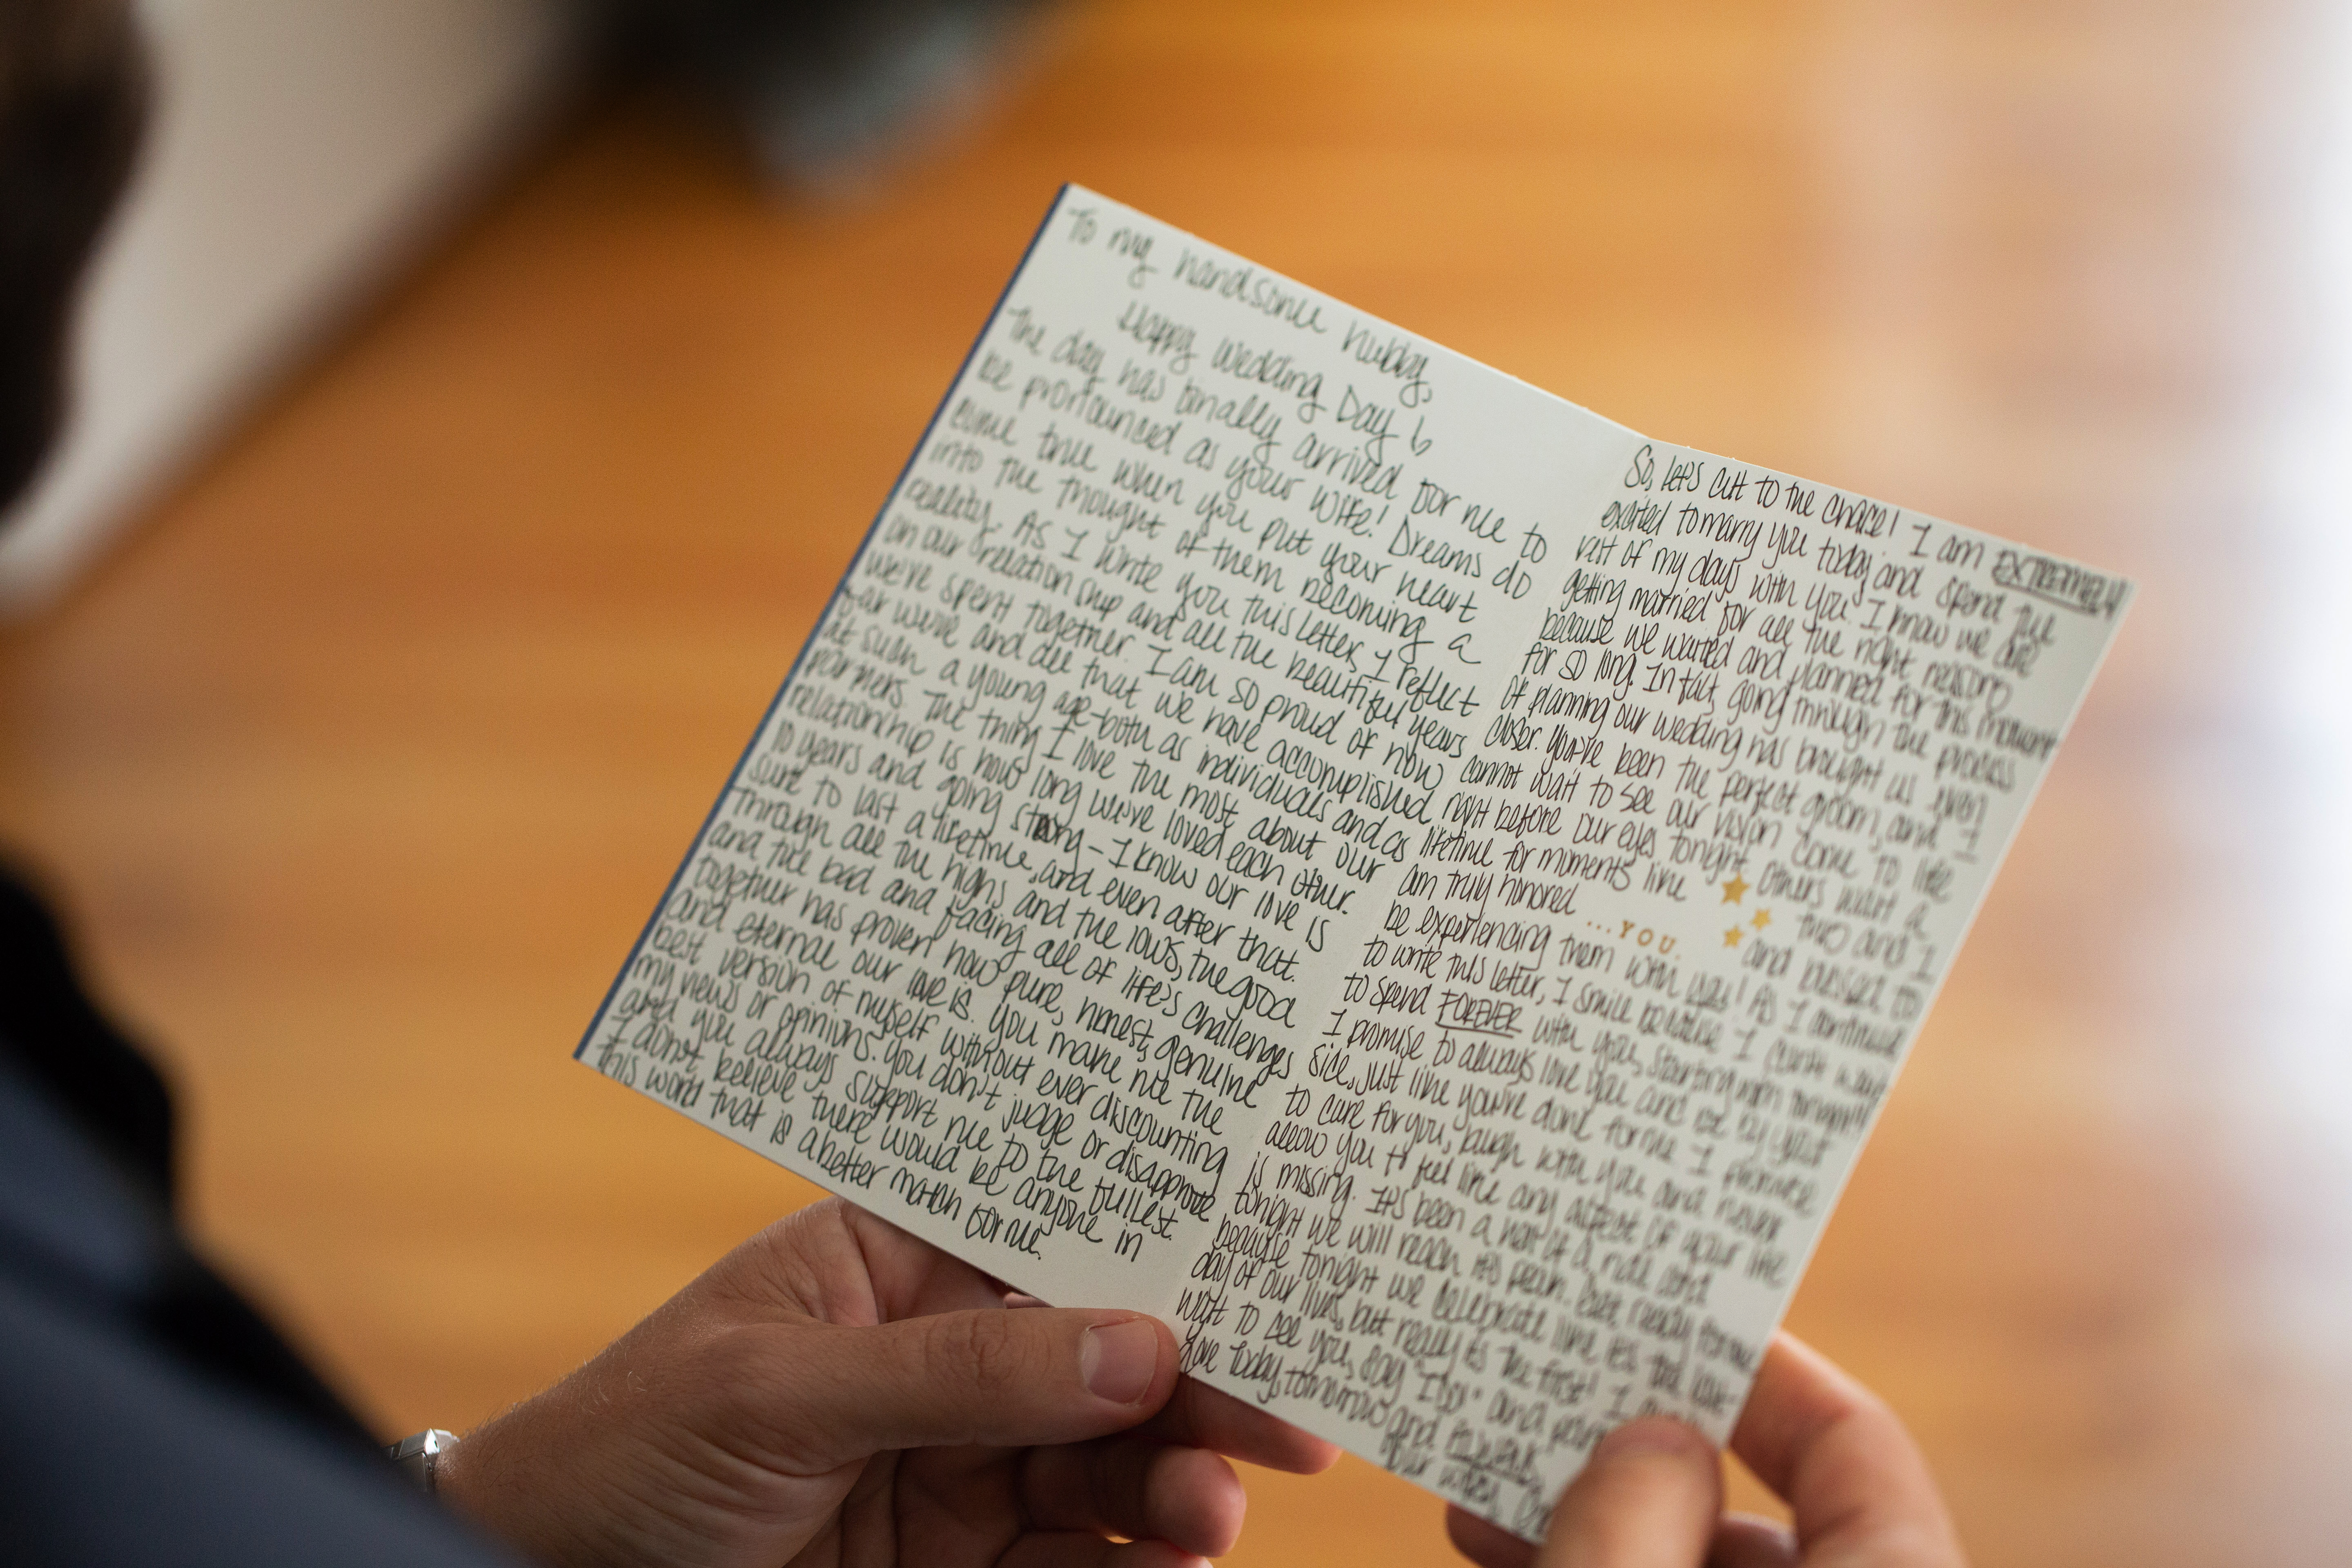 To my handsome hubby,
Happy Wedding Day
The day has finally arrived for me to
be pronounced as your wife! Dreams do
come true when you put your heart
into the thought of them becoming a
reality. As I write you this letter, I reflect
on our relationship and all the beautiful years
we've spent together. I am so proud of how
far we've and all that we have accomplished
at such a young age-both as individuals and as
partners. The thing I love the most about our
relationship is how long we've loved each other.
10 years and going strong - I know our love is
sure to last a lifetime, and even after that.
Through all the highs and the lows, the good
and the bad and facing all of life's challenges
together has proven how pure, honest, genuine
and eternal our love is. You make me the
best version of myself without ever discounting
my views or opinions. You don't judge or disapprove
and you always support me to the fullest.
I don't believe there would be anyone in
this world that is a better match for me.
So, let's cut to the chase! I am EXTREMELY
excited to marry you today and spend the
rest of my days with you. I know we are
getting married for all the right reasons
because we waited and planned for this moment
for so long. In fact, going through the process
of planning our wedding has brought us even
closer. You've been the perfect groom, and I
cannot wait to see our vision come to life
right before our eyes tonight. Others wait a
lifetime for moments like this and I
am truly honored and blessed to
...YOU.
be experiencing them with you! As I continue
to write this letter, I smile because I can't wait
to spend FOREVER with you, starting tonight!
I promise to always love you and be by your
side, just like you've done for me. I promise
to care for you, laugh with you and never
allow you to feel like any aspect of your life
is missing. It's been a hell of a ride and
tonight we will reach it's peak. Get ready for me
because tonight we celebrate like it's the last
day of our lives, but really it's the first! I
wait to see you, say "I do" and
love today, tomorrow and forever,
Your wifey,